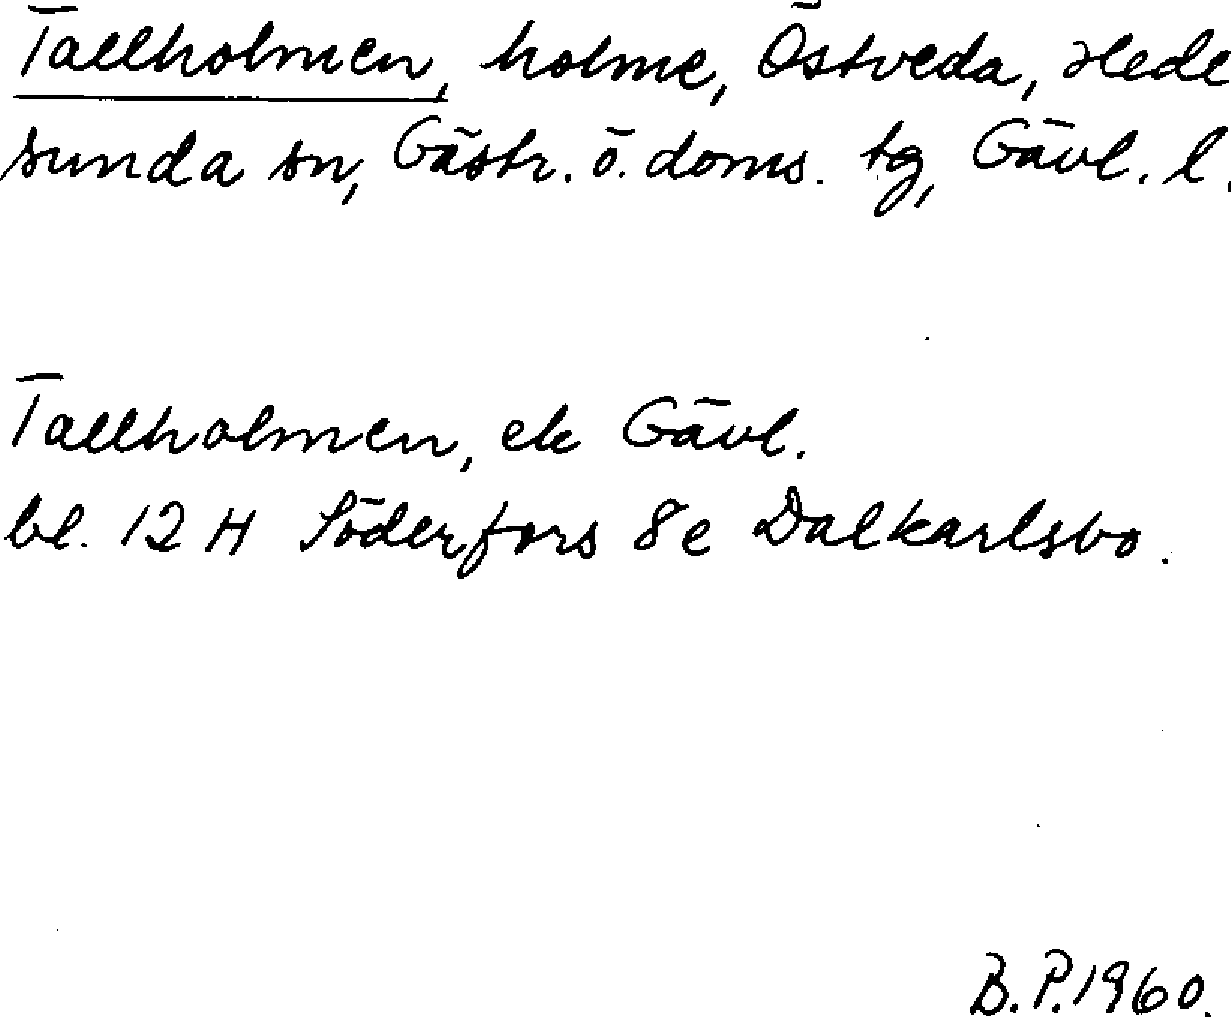 Tallholmen, holme, Östveda, Hede
sunda sn, Gästr. ö. doms. tg, Gävl. l.
Tallholmen, ek Gävl.
bl. 12 H Söderfors 8e Dalkarlsbo.
B.P. 1960.